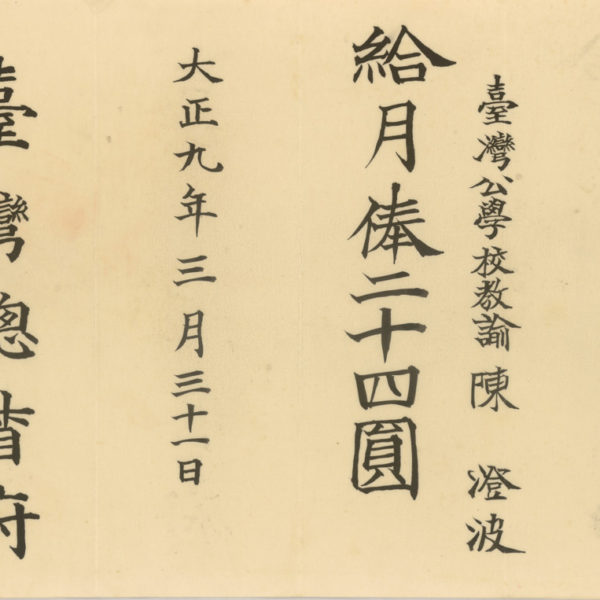 臺灣公學校教諭陳 澄波
給月俸二十四圓
大正九年三月三十一日
臺灣總督府